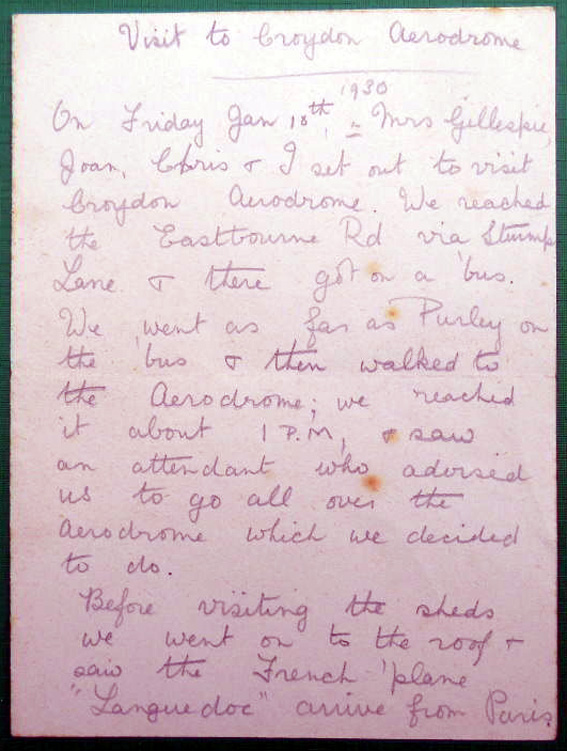 Visit to Croydon Aerodrome
1930
On Friday Jan 18th, = Mrs Gillespie,
Joan, Chris & I set out to visit
Croydon Aerodrome. We reached
the Eastbourne Rd via Stumps
Lane & there got on a 'bus.
We went as far as Purley on
the 'bus & then walked to
the Aerodrome; we reached
it about 1 P.M, & saw
an attendant who advised
us to go all over the
Aerodrome which we decided
to do.
Before visiting the sheds
we went on to the roof &
saw the French 'plane
"Languedoc" arrive from Paris.